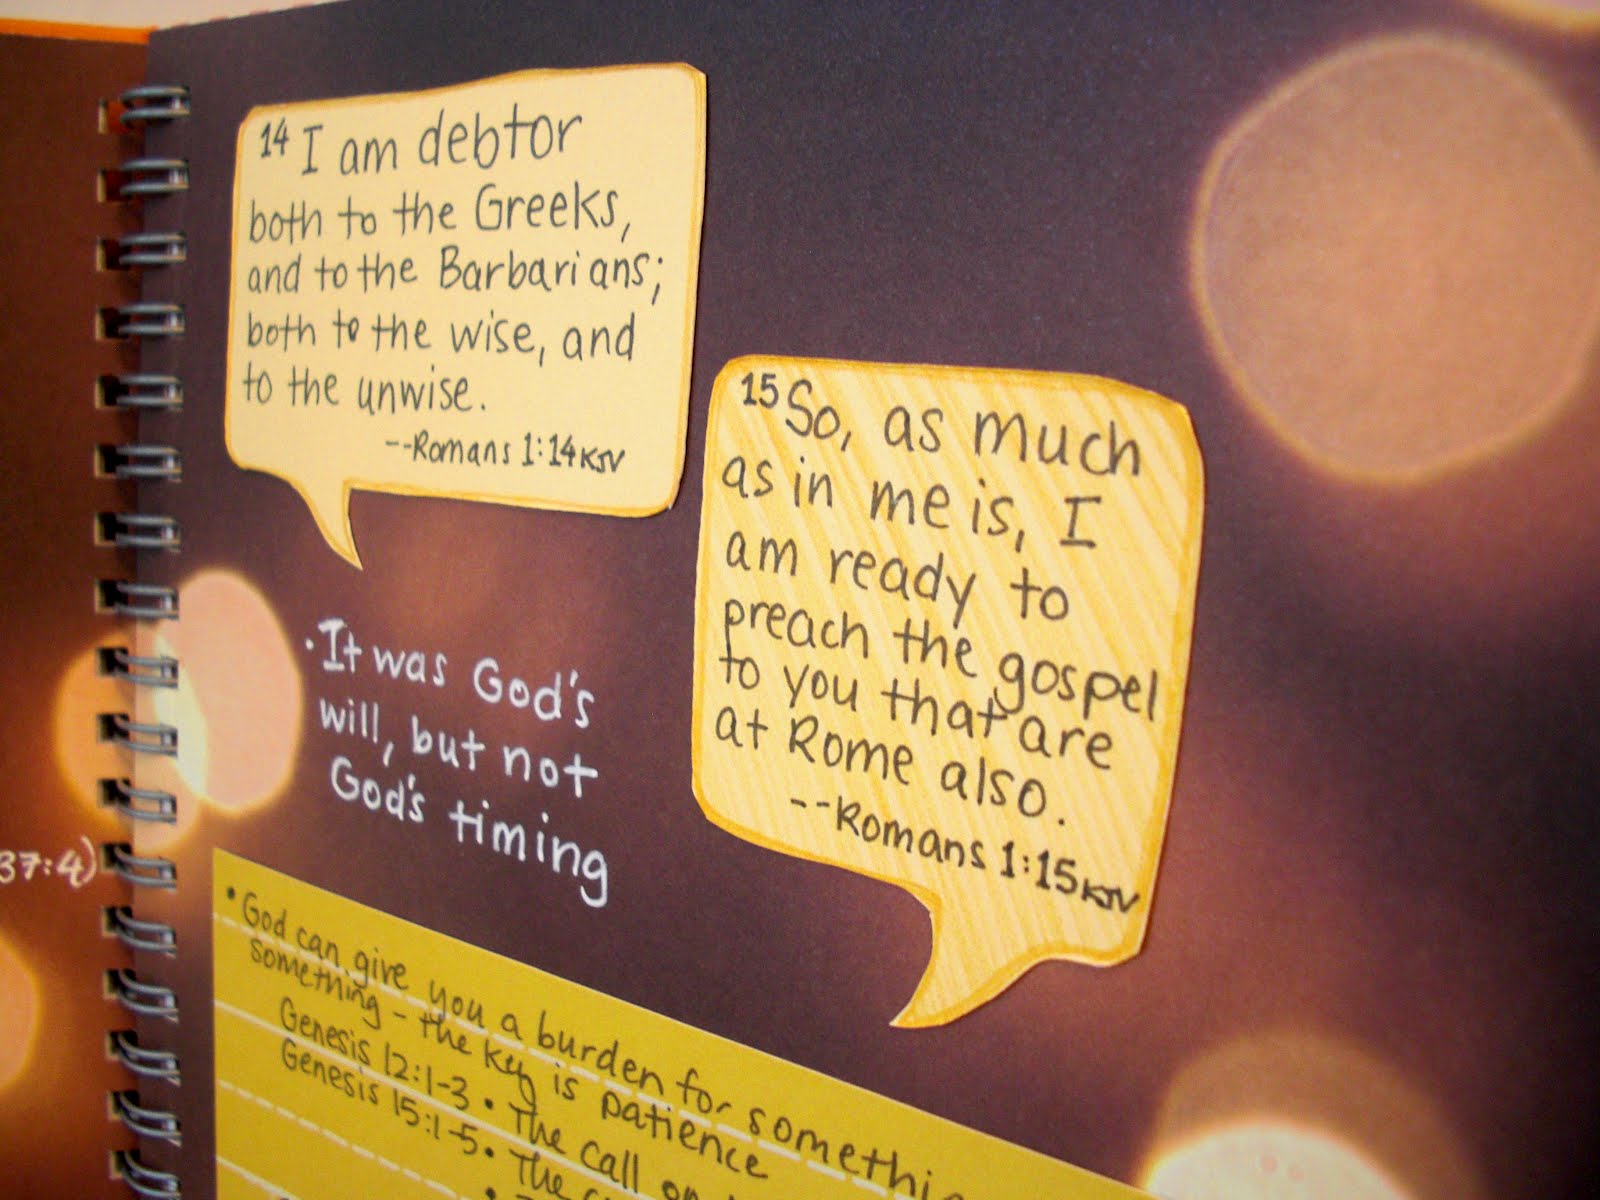 14 I am debtor
both to the Greeks,
and to the Barbarians;
both to the wise, and
to the unwise.
--Romans 1:14 KJV
15 So, as much
as in me is, I
am ready to
preach the gospel
to you that are
at Rome also.
--Romans 1:15 KJV
• It was God's
will, but not
God's timing
37:4)
• God can give you a burden for
something - the key is patience
Genesis 12:1-3 • The call
Genesis 15:1-5 • The